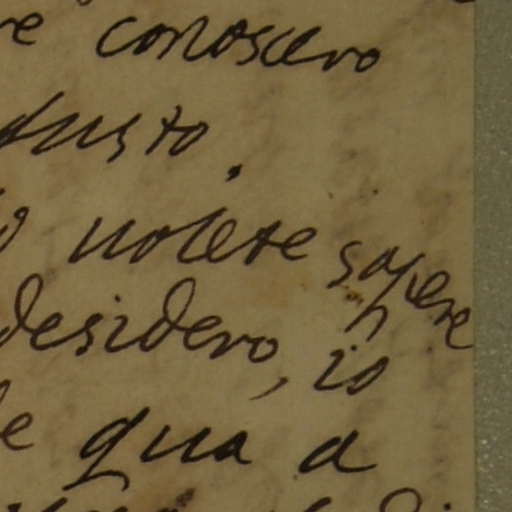 re conoscero
gusto.
uolete sapere
desidero, io
e qua a